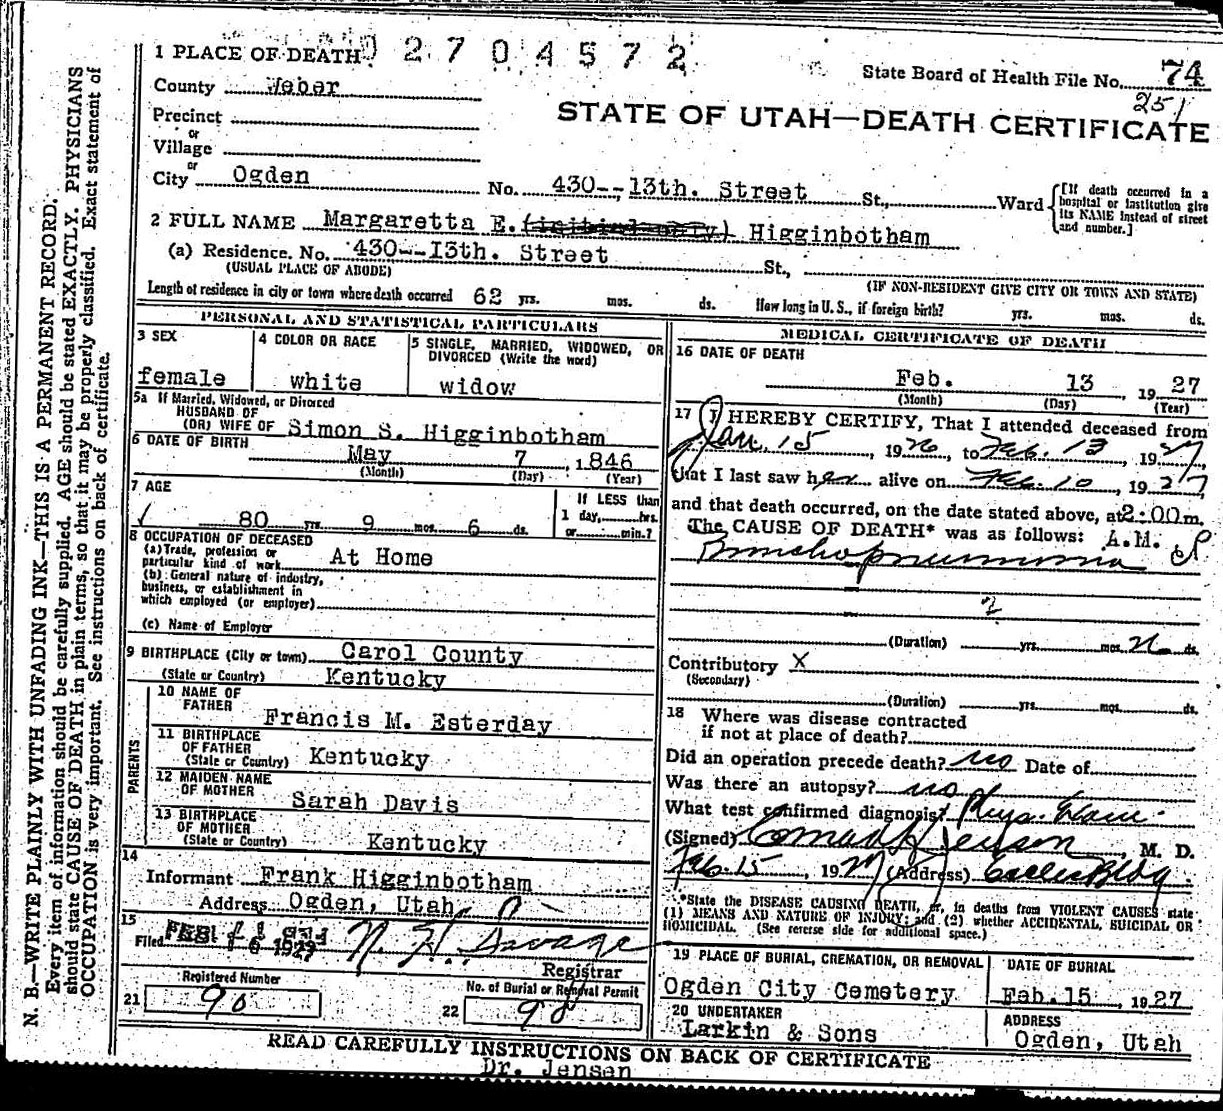 0 2 7 0 4 5 7 2
1 PLACE OF DEATH
State Board of Health File No. 74
251
County Weber
STATE OF UTAH—DEATH CERTIFICATE
Precinct
or
Village
or
City Ogden No. 430--13th. Street St., Ward
[If death occurred in a hospital or institution give its NAME instead of street and number.]
2 FULL NAME Margaretta E. Higginbotham
(a) Residence. No. 430--13th. Street St.,
(USUAL PLACE OF ABODE) (IF NON-RESIDENT GIVE CITY OR TOWN AND STATE)
Length of residence in city or town where death occurred 62 yrs. mos. ds. How long in U.S., if foreign birth? yrs. mos. ds.
PERSONAL AND STATISTICAL PARTICULARS
3 SEX
female
4 COLOR OR RACE
white
5 SINGLE, MARRIED, WIDOWED, OR DIVORCED (Write the word)
widow
5a If Married, Widowed, or Divorced
HUSBAND OF
(OR) WIFE OF Simon S. Higginbotham
6 DATE OF BIRTH May 7, 1846
(Month) (Day) (Year)
7 AGE
80 yrs. 9 mos. 6 ds.
If LESS than
1 day,......hrs.
or......min.?
8 OCCUPATION OF DECEASED
(a) Trade, profession or particular kind of work At Home
(b) General nature of industry, business, or establishment in which employed (or employer)
(c) Name of Employer
9 BIRTHPLACE (City or town) Carol County
(State or Country) Kentucky
PARENTS
10 NAME OF FATHER Francis M. Esterday
11 BIRTHPLACE OF FATHER (State or Country) Kentucky
12 MAIDEN NAME OF MOTHER Sarah Davis
13 BIRTHPLACE OF MOTHER (State or Country) Kentucky
14
Informant Frank Higginbotham
Address Ogden, Utah
15
Filed FEB 16 1927 N. H. Savage
Registrar
Registered Number
21 90
No. of Burial or Removal Permit
22 90
MEDICAL CERTIFICATE OF DEATH
16 DATE OF DEATH
Feb. 13, 1927
(Month) (Day) (Year)
17 I HEREBY CERTIFY, That I attended deceased from
Jan. 15, 1926, to Feb. 13, 1927,
that I last saw her alive on Feb. 10, 1927
and that death occurred, on the date stated above, at 2:00 m.
The CAUSE OF DEATH* was as follows: A.M.
Bronchopneumonia
(Duration) yrs. mos. ds.
Contributory X
(Secondary)
(Duration) yrs. mos. ds.
18 Where was disease contracted
if not at place of death?
Did an operation precede death? no Date of
Was there an autopsy? no
What test confirmed diagnosis? Phys. Exam.
(Signed) Conrad H Jensen, M. D.
Feb. 15, 1927 (Address) Eccles Bldg.
*State the DISEASE CAUSING DEATH, or, in deaths from VIOLENT CAUSES state (1) MEANS AND NATURE OF INJURY; and (2) whether ACCIDENTAL, SUICIDAL OR HOMICIDAL. (See reverse side for additional space.)
19 PLACE OF BURIAL, CREMATION, OR REMOVAL
Ogden City Cemetery
DATE OF BURIAL
Feb. 15, 1927
20 UNDERTAKER
Larkin & Sons
ADDRESS
Ogden, Utah
READ CAREFULLY INSTRUCTIONS ON BACK OF CERTIFICATE
Dr. Jensen
N. B.—WRITE PLAINLY WITH UNFADING INK—THIS IS A PERMANENT RECORD.
Every item of information should be carefully supplied. AGE should be stated EXACTLY. PHYSICIANS
should state CAUSE OF DEATH in plain terms, so that it may be properly classified. Exact statement of
OCCUPATION is very important. See instructions on back of certificate.